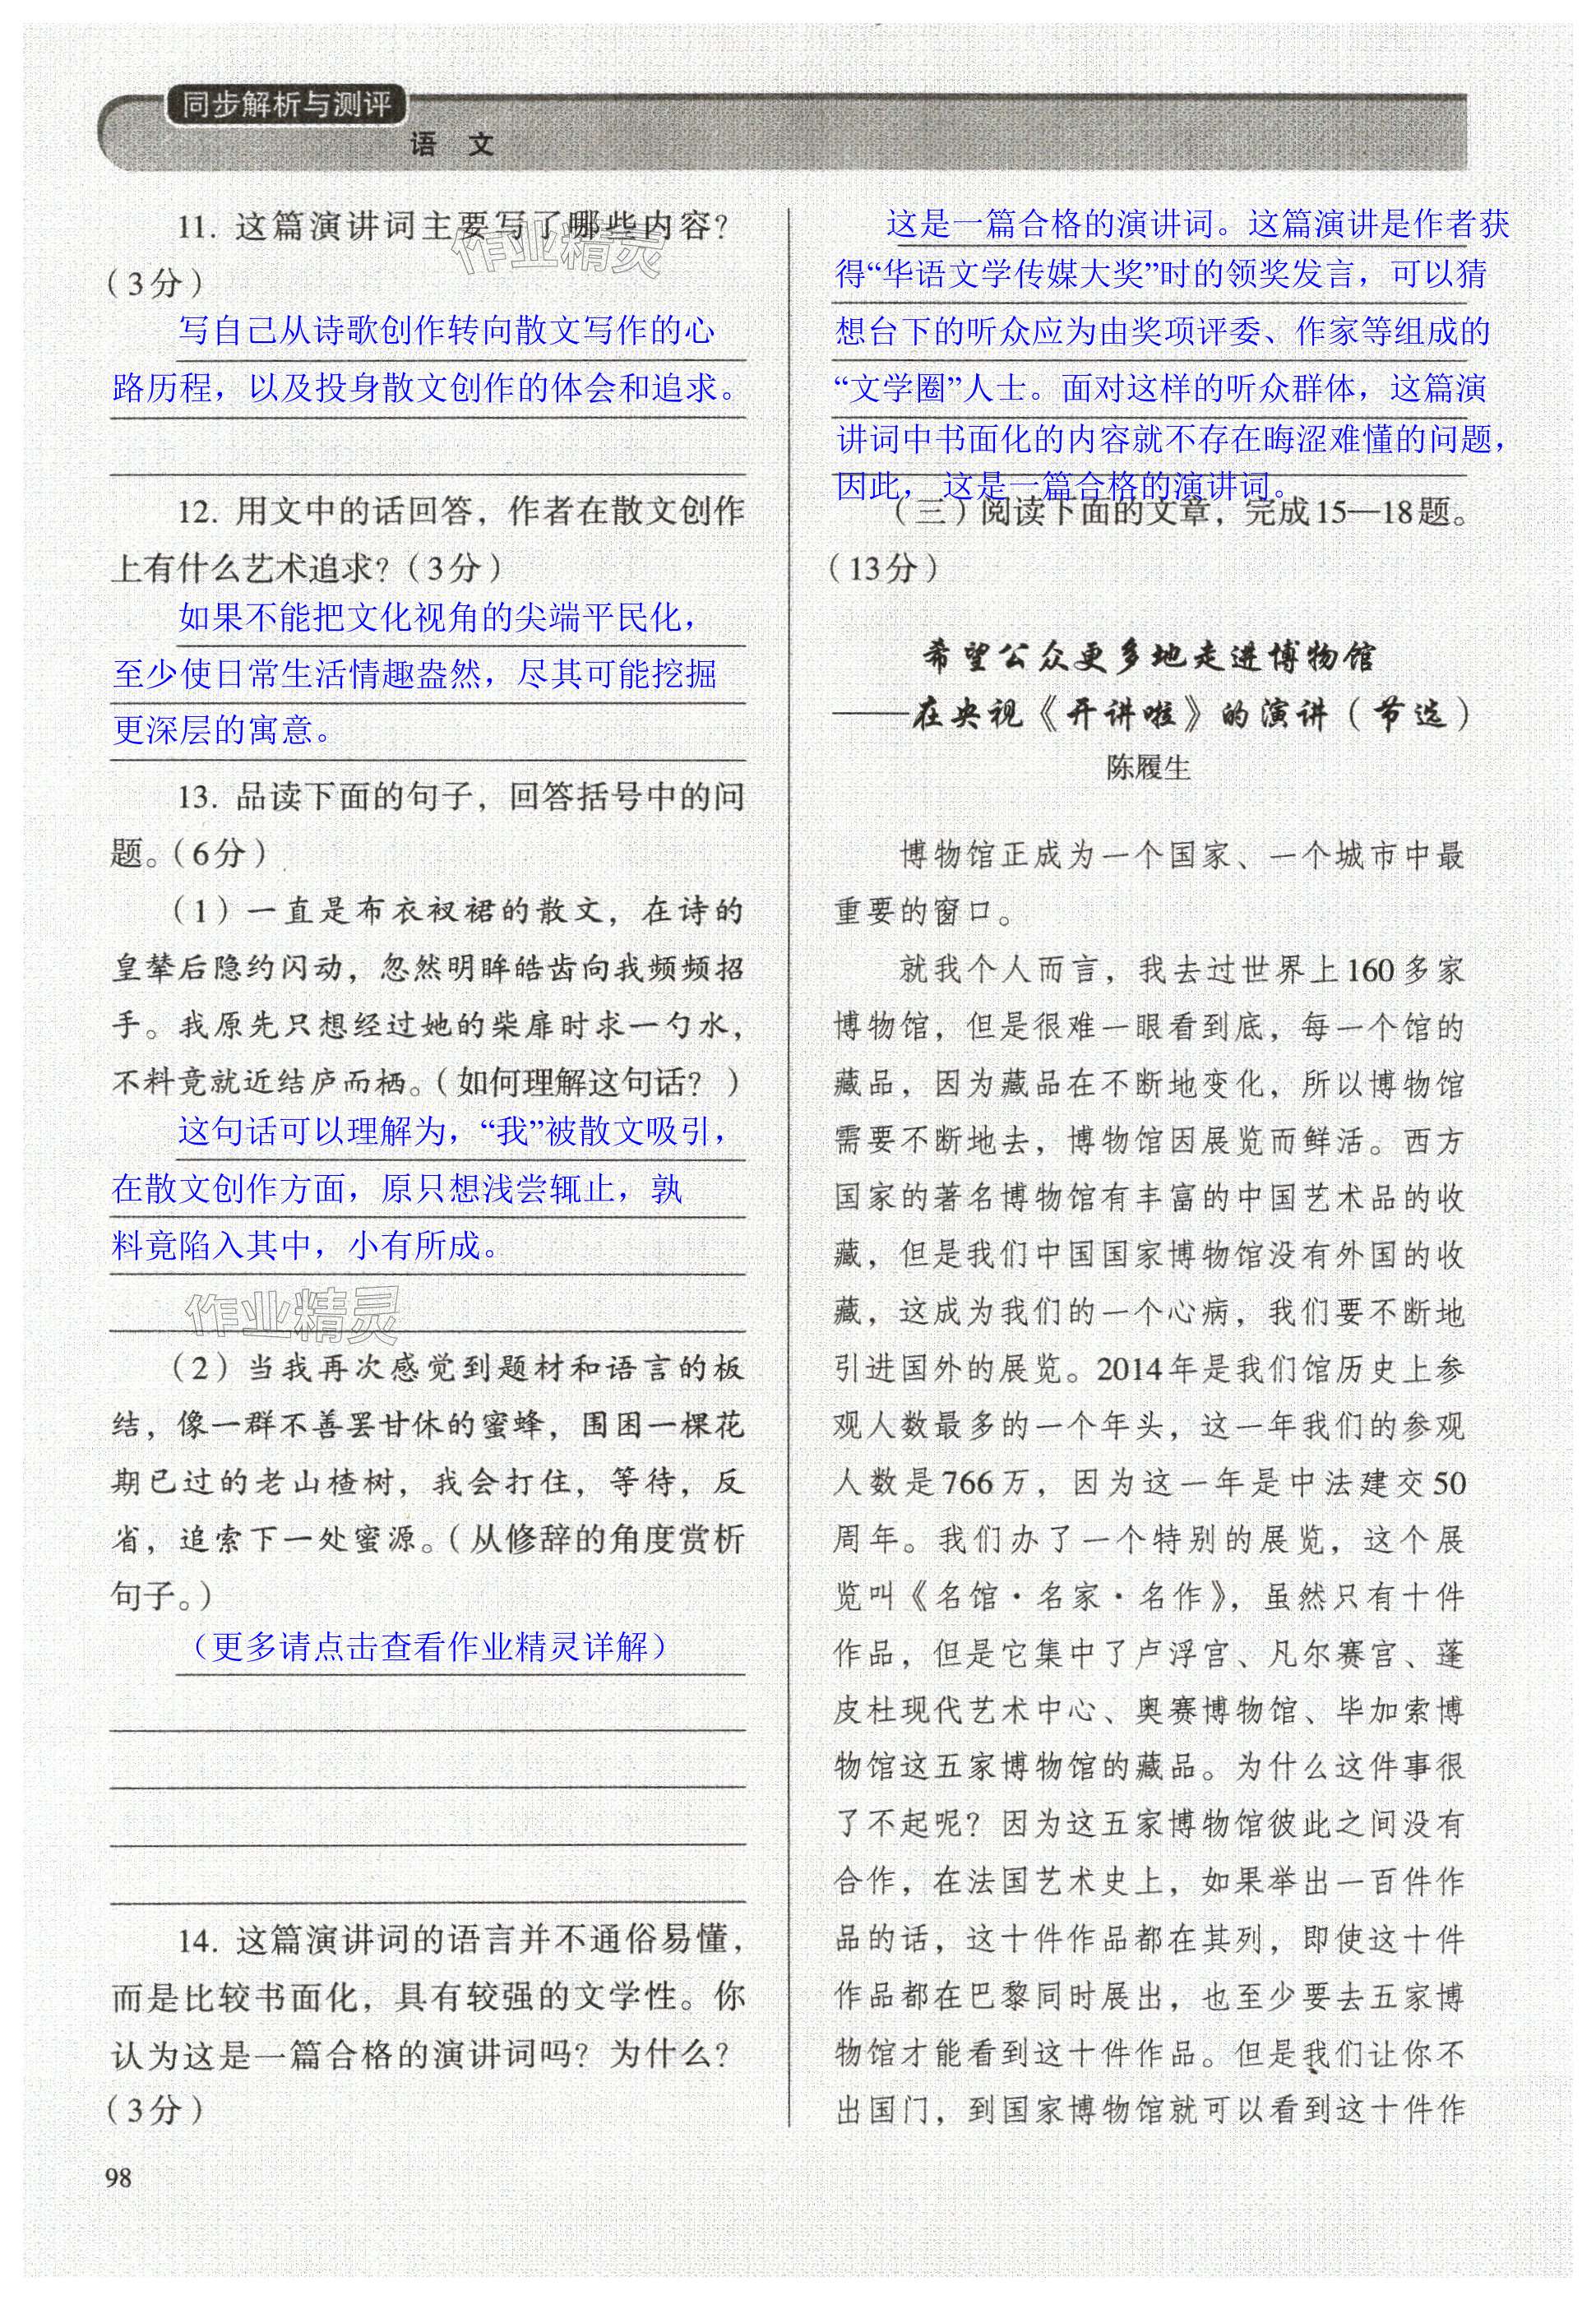 同步解析与测评
语 文
11. 这篇演讲词主要写了哪些内容？
（3分）
写自己从诗歌创作转向散文写作的心
路历程，以及投身散文创作的体会和追求。
12. 用文中的话回答，作者在散文创作
上有什么艺术追求？（3分）
如果不能把文化视角的尖端平民化，
至少使日常生活情趣盎然，尽其可能挖掘
更深层的寓意。
13. 品读下面的句子，回答括号中的问
题。（6分）
（1）一直是布衣衩裙的散文，在诗的
皇辇后隐约闪动，忽然明眸皓齿向我频频招
手。我原先只想经过她的柴扉时求一勺水，
不料竟就近结庐而栖。（如何理解这句话？）
这句话可以理解为，“我”被散文吸引，
在散文创作方面，原只想浅尝辄止，孰
料竟陷入其中，小有所成。
作业精灵
（2）当我再次感觉到题材和语言的板
结，像一群不善罢甘休的蜜蜂，围困一棵花
期已过的老山楂树，我会打住，等待，反
省，追索下一处蜜源。（从修辞的角度赏析
句子。）
（更多请点击查看作业精灵详解）
14. 这篇演讲词的语言并不通俗易懂，
而是比较书面化，具有较强的文学性。你
认为这是一篇合格的演讲词吗？为什么？
（3分）
98
作业精灵
这是一篇合格的演讲词。这篇演讲是作者获
得“华语文学传媒大奖”时的领奖发言，可以猜
想台下的听众应为由奖项评委、作家等组成的
“文学圈”人士。面对这样的听众群体，这篇演
讲词中书面化的内容就不存在晦涩难懂的问题，
因此，这是一篇合格的演讲词。
（三）阅读下面的文章，完成15—18题。
（13分）
希望公众更多地走进博物馆
——在央视《开讲啦》的演讲（节选）
陈履生
博物馆正成为一个国家、一个城市中最
重要的窗口。
就我个人而言，我去过世界上160多家
博物馆，但是很难一眼看到底，每一个馆的
藏品，因为藏品在不断地变化，所以博物馆
需要不断地去，博物馆因展览而鲜活。西方
国家的著名博物馆有丰富的中国艺术品的收
藏，但是我们中国国家博物馆没有外国的收
藏，这成为我们的一个心病，我们要不断地
引进国外的展览。2014年是我们馆历史上参
观人数最多的一个年头，这一年我们的参观
人数是766万，因为这一年是中法建交50
周年。我们办了一个特别的展览，这个展
览叫《名馆·名家·名作》，虽然只有十件
作品，但是它集中了卢浮宫、凡尔赛宫、蓬
皮杜现代艺术中心、奥赛博物馆、毕加索博
物馆这五家博物馆的藏品。为什么这件事很
了不起呢？因为这五家博物馆彼此之间没有
合作，在法国艺术史上，如果举出一百件作
品的话，这十件作品都在其列，即使这十件
作品都在巴黎同时展出，也至少要去五家博
物馆才能看到这十件作品。但是我们让你不
出国门，到国家博物馆就可以看到这十件作